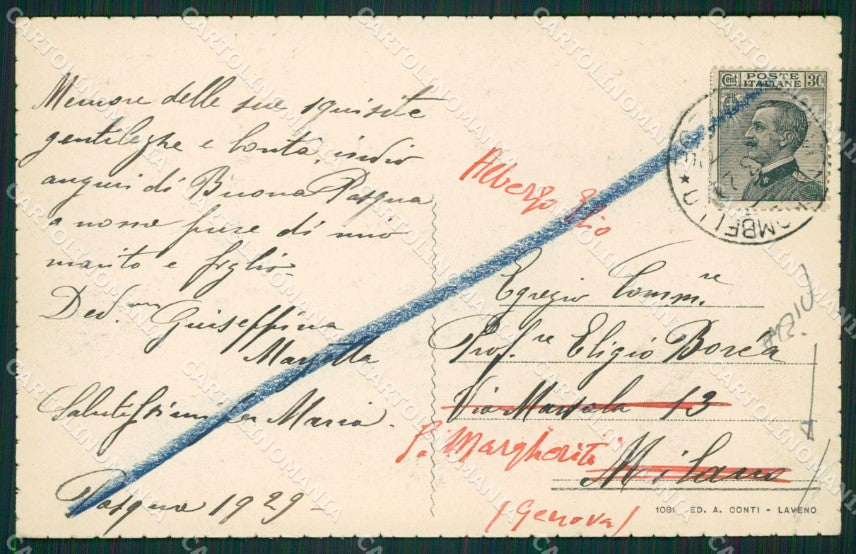 Memore delle sue squisite
gentilezze e bontà, invio
auguri di Buona Pasqua
a nome pure di mio
marito e figlio.
Ded.ma Giuseffina
Salutissimi Maria.
Pasqua 1929-
POSTE
ITALIANE
Cent 30
OMBELLO
Albergo Elio
Egregio Comm.re
Prof.re Eligio Boréa
Via 13
S. Margherita
Milano
(Genova)
ED. A. CONTI - LAVENO
CARTOLINOMANIA